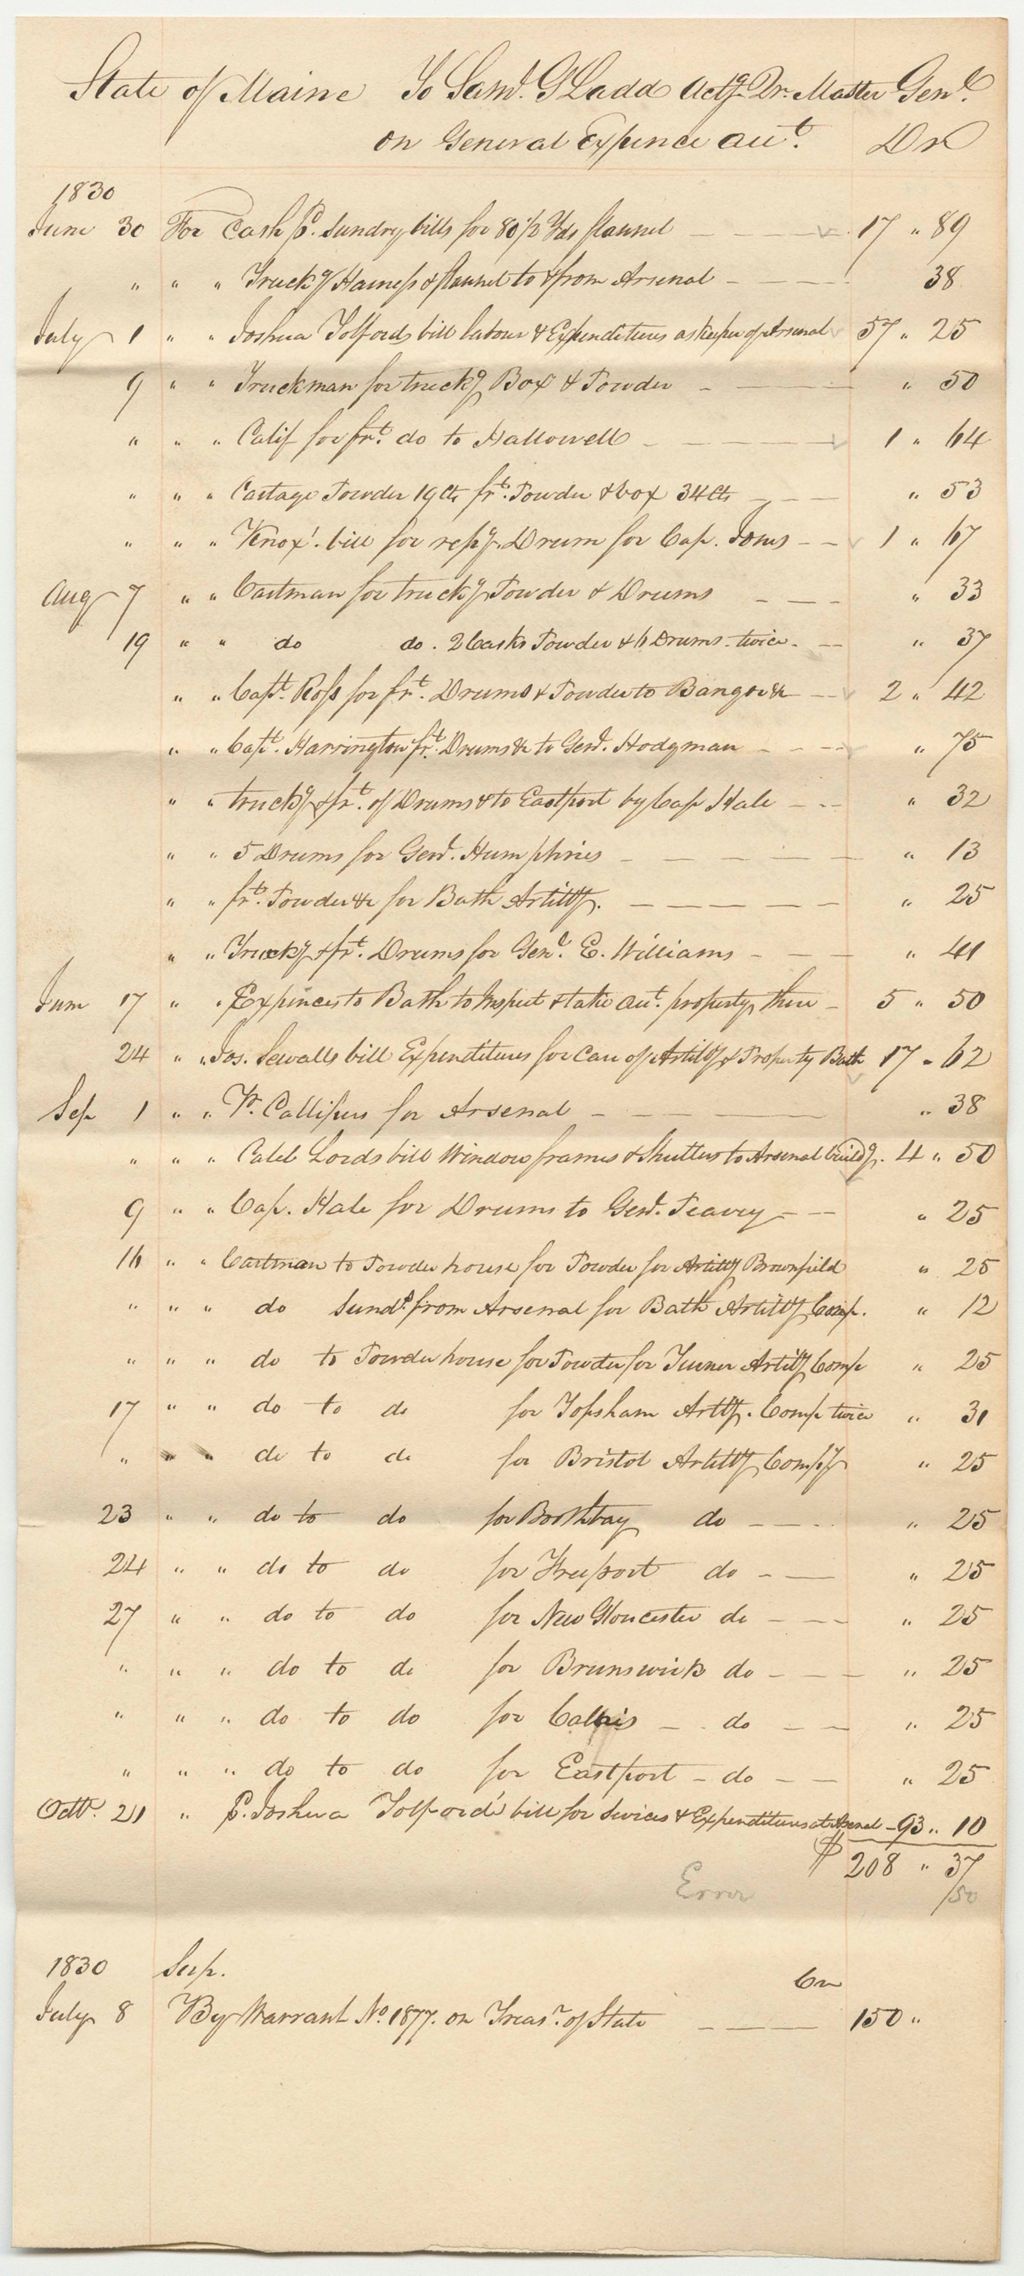 State of Maine To Saml. G Ladd Actg. Qr. Master Genl.
on General Expence acct. Dr
1830
June 30 For Cash pd. Sundry bills for 80 1/2 Yds flannel — — — 17 " 89
" " " Truckg Harness & flannel to & from Arsenal — — — 38
July 1 " " Joshua Tolfords bill labour & Expenditures as keeper of Arsenal 57 " 25
9 " " Truckman for truckg Box & Powder — — — " 50
" " " Calif for frt. do to Hallowell — — — 1 " 64
" " " Cartage Powder 19 Cts frt. Powder & box 34 Cts — — " 53
" " " Knox'. bill for repg. Drum for Cap. Jones — — 1 " 67
Aug 7 " " Cartman for truckg Powder & Drums — — " 33
19 " " do do. 2 Casks Powder & 6 Drums twice. — " 37
" " Capt. Ross for frt. Drums & Powder to Bangor &c — — 2 " 42
" " Capt. Harrington frt. Drums &c to Genl. Hodgman — — " 75
" " truckg & frt. of Drums & to Eastport by Cap Hale — — " 32
" " 5 Drums for Genl. Humphries — — — " 13
" " frt. Powder &c for Bath Artilly. — — — " 25
" " Truckg & frt. Drums for Genl. E. Williams — — — " 41
June 17 " " Expences to Bath to Inspect & take act. property there — 5 " 50
24 " " Jos. Sewalls bill Expenditures for Care of Artilly & Property Bath 17 " 62
Sep 1 " " Pr. Callipers for Arsenal — — — " 38
" " " Caleb Lords bill Window frames & Shutters to Arsenal buildg. 4 " 50
9 " " Cap. Hale for Drums to Genl. Peavey — — " 25
16 " " Cartman to Powder house for Powder for Artilly Brownfield " 25
" " " do Sunds. from Arsenal for Bath Artilly Comp. " 12
" " " do to Powder house for Powder for Turner Artilly Comp " 25
17 " " do to do for Topsham Artlly. Comp twice " 31
" " " do to do for Bristol Artilly Compy " 25
23 " " do to do for Boothbay do — — " 25
24 " " do to do for Freeport do — — " 25
27 " " do to do for New Gloucester do — — " 25
" " " do to do for Brunswick do — — " 25
" " " do to do for Callais — do — — " 25
" " " do to do for Eastport — do — — " 25
Octr. 21 " P. Joshua Tolford's bill for Services & Expenditures at Arsenal — 93 " 10
$ 208 " 37
Error /50
1830 Sup. Cr
July 8 By Warrant No. 1877. on Treasr. of State — — 150 "